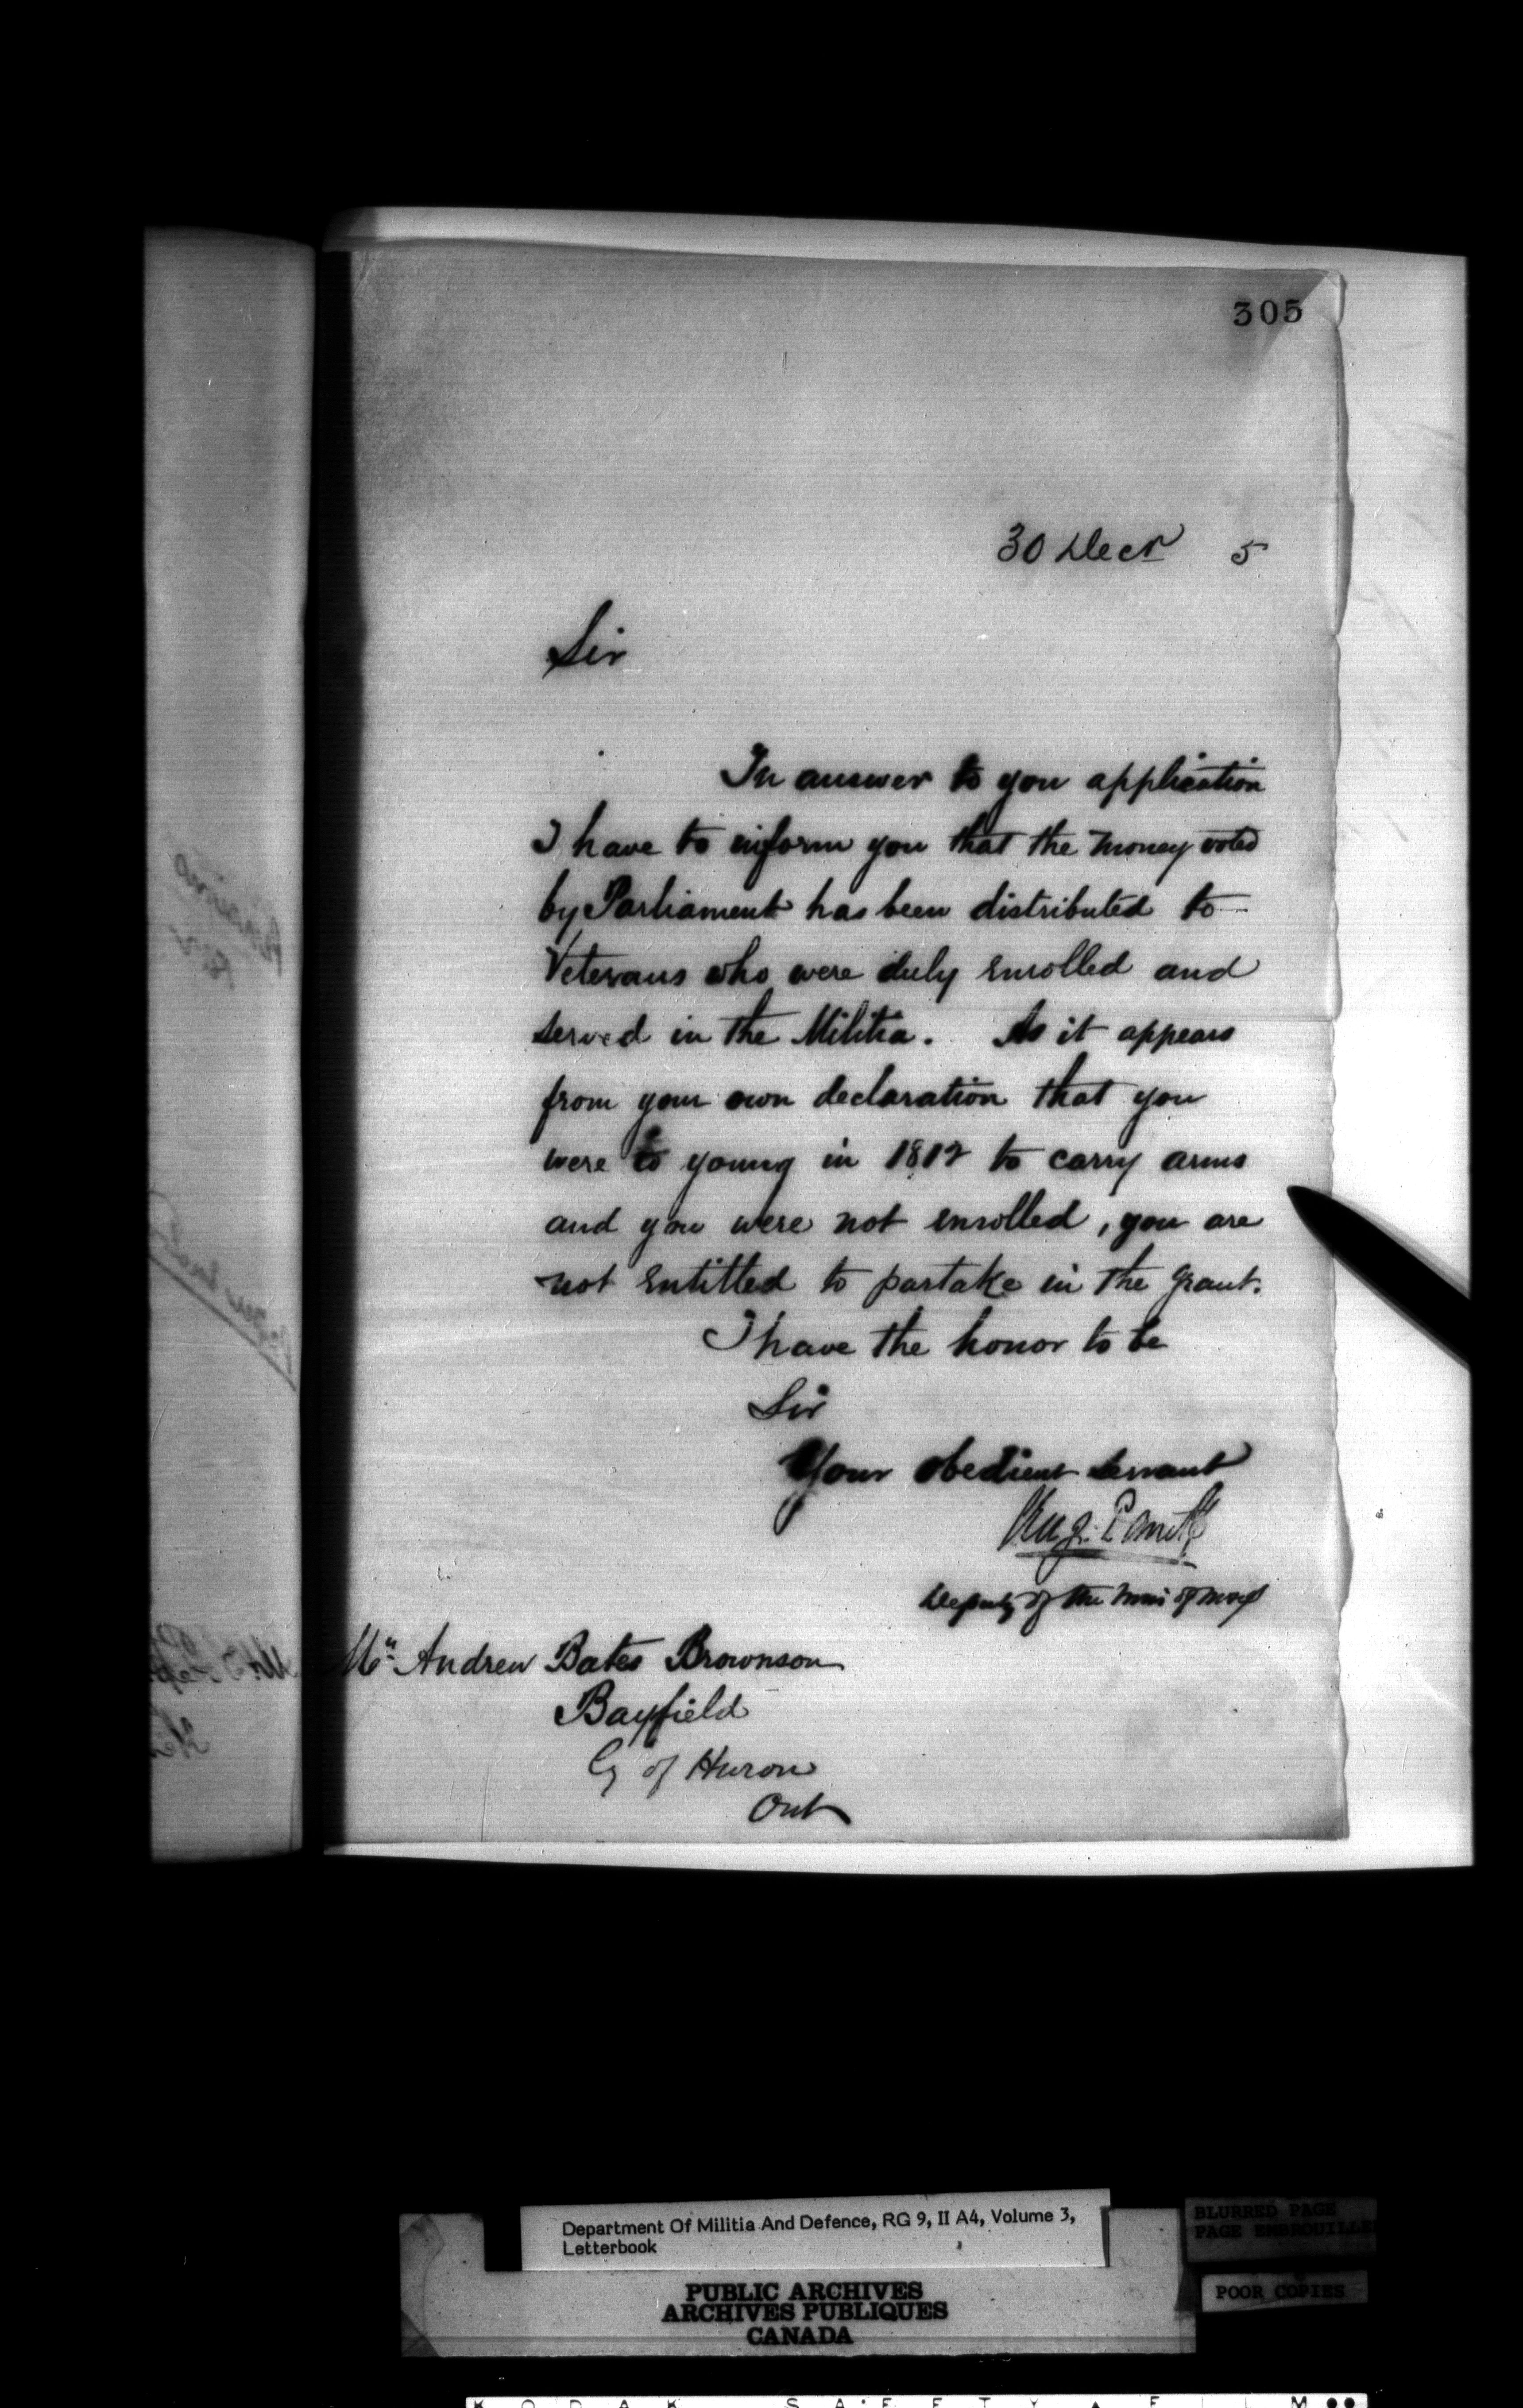 305
30 Decr 5
Sir
In answer to you application
I have to inform you that the money voted
by Parliament has been distributed to
Veterans who were duly enrolled and
served in the Militia. As it appears
from your own declaration that you
were to young in 1812 to carry arms
and you were not enrolled, you are
not entitled to partake in the grant.
I have the honor to be
Sir
Your obedient servant
Eug. Panet
Deputy of the Min of
Mr Andrew Bates Brownson
Bayfield
Cy of Huron
Ont
Department Of Militia And Defence, RG 9, II A4, Volume 3,
Letterbook
BLURRED PAGE
PAGE EMBROUILLE
POOR COPIES
PUBLIC ARCHIVES
ARCHIVES PUBLIQUES
CANADA
KODAK SAFETY FILM